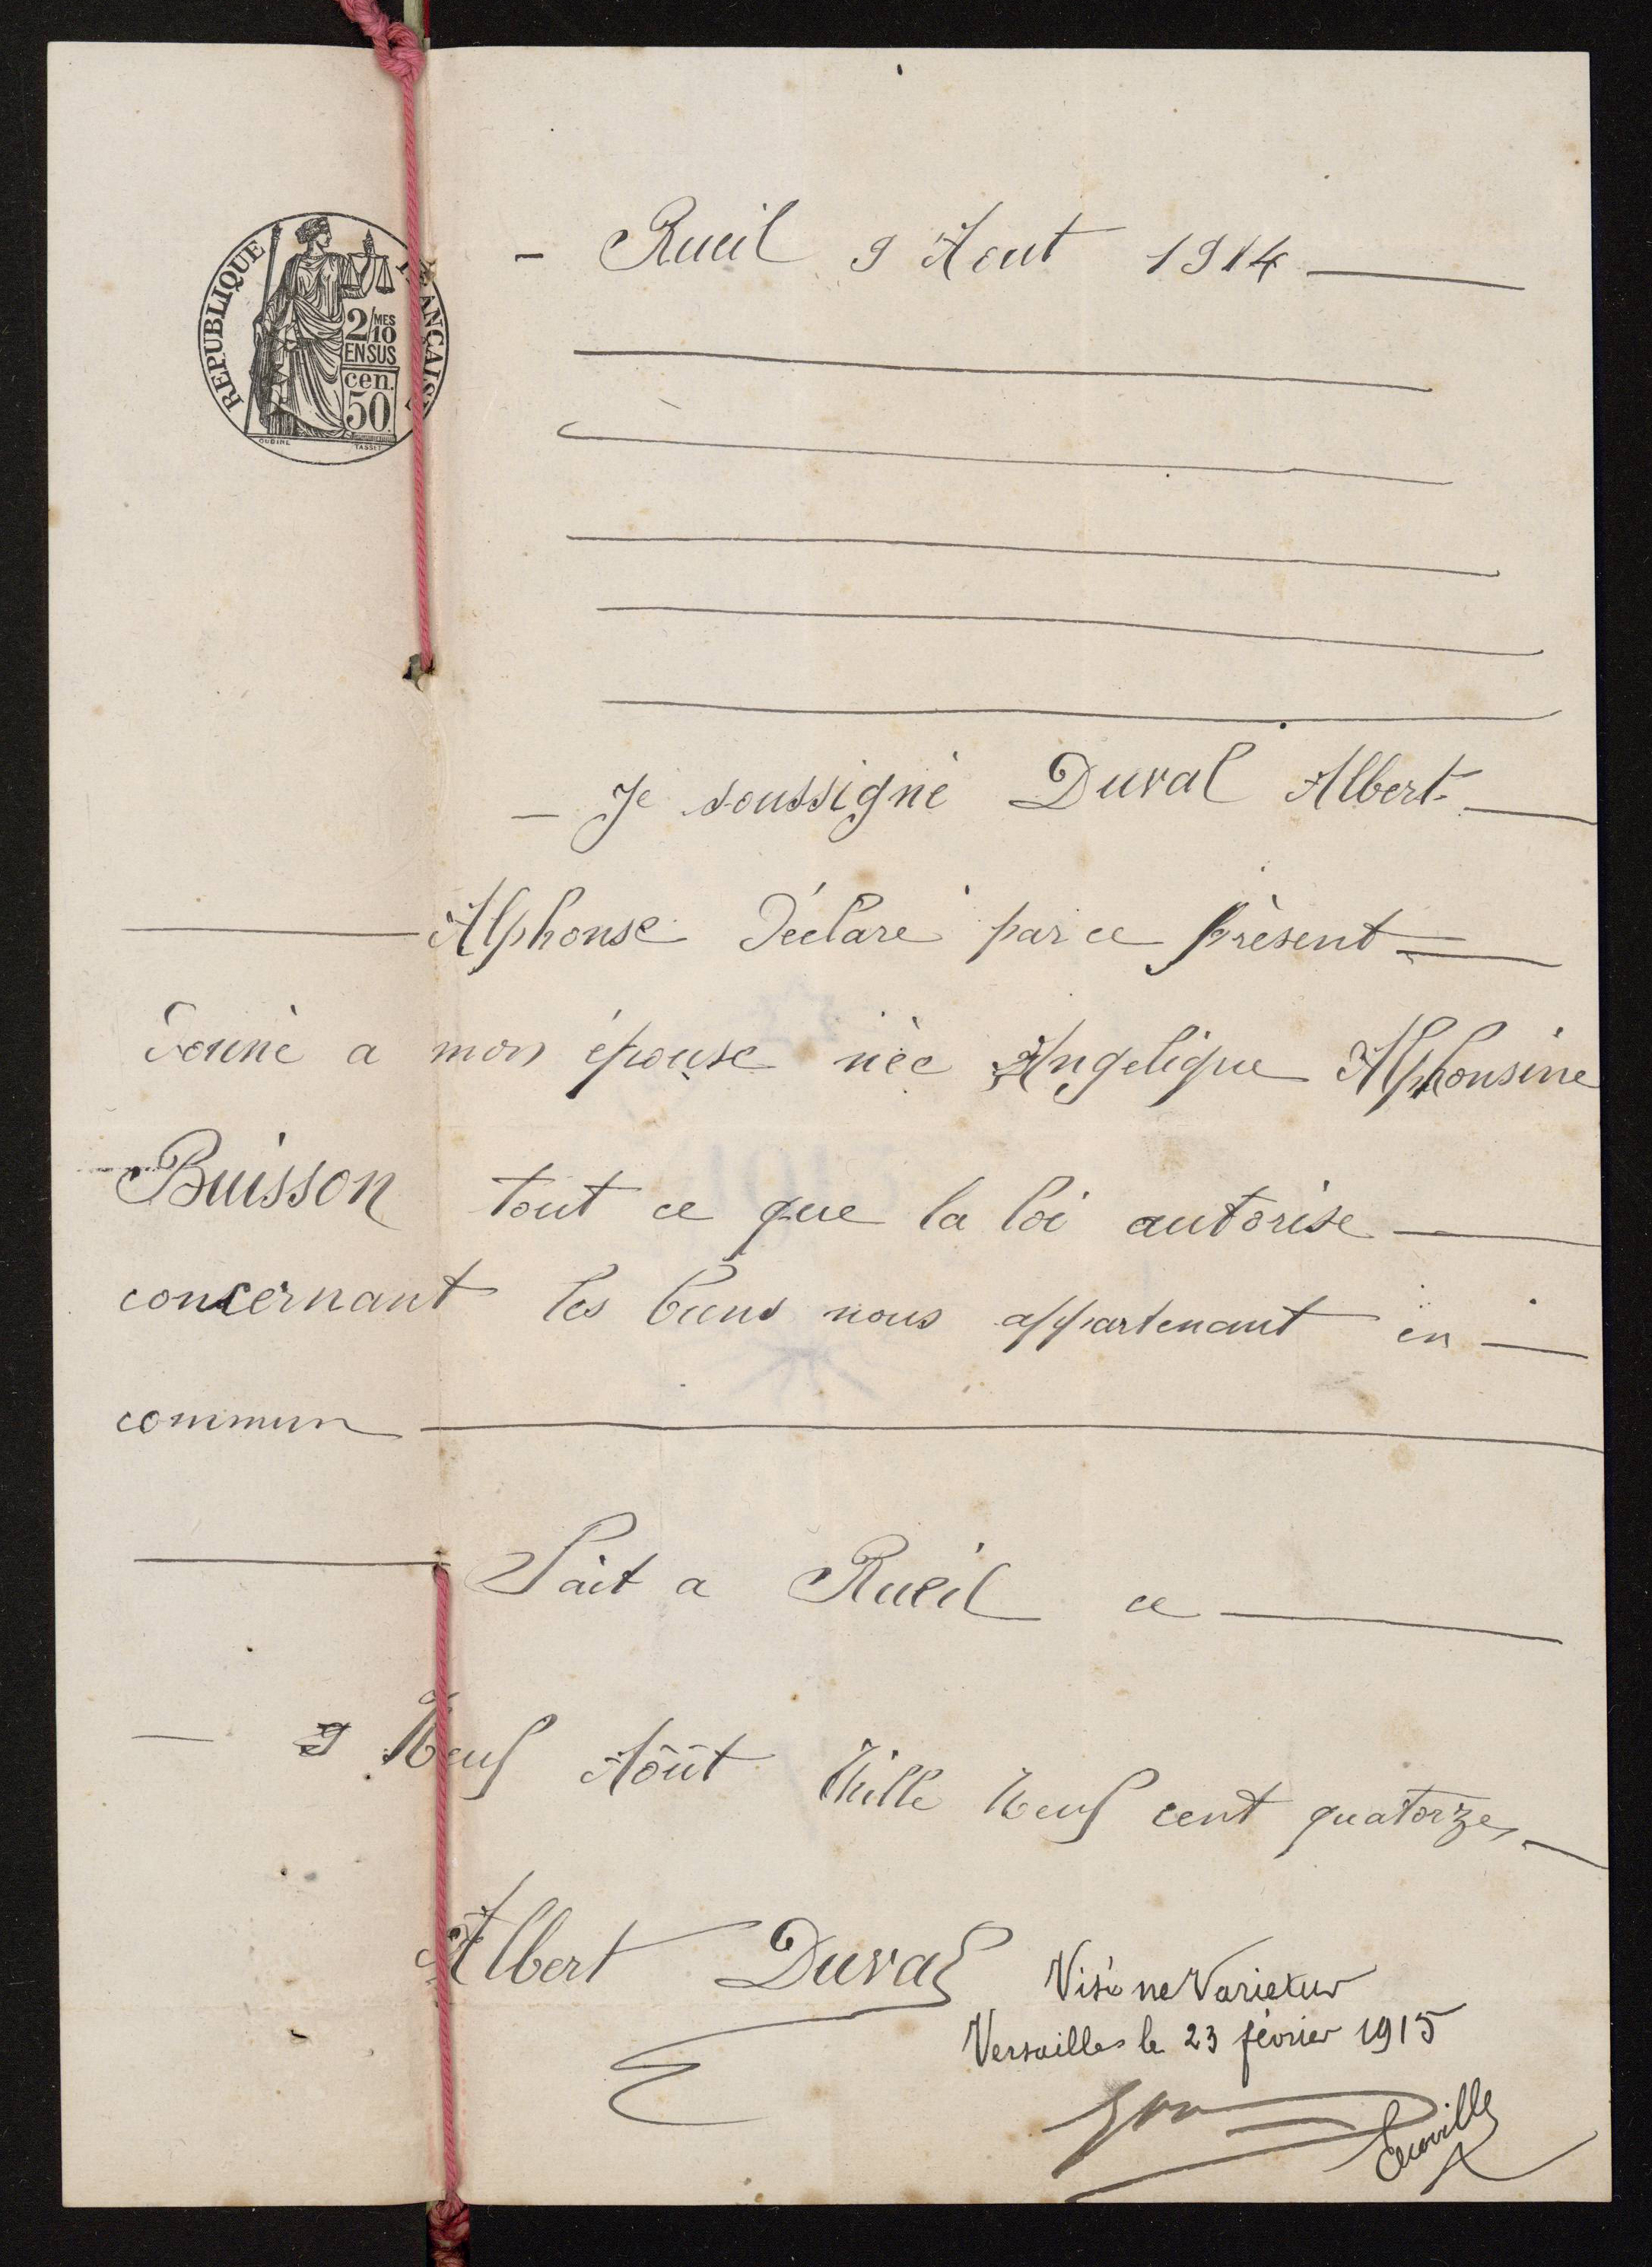 REPUBLIQUE FRANÇAISE
2/MES
10
EN SUS
cen.
50.
OUDINE TASSET
- Rueil 9 Aout 1914
- Je soussigné Duval Albert
Alphonse Déclare par ce présent
donné a mon épouse née Angelique Alphonsine
Buisson tout ce que la loi autorise
concernant les biens nous appartenant en
commun
Fait a Rueil ce
- 9 Neuf Aôut Mille Neuf cent quatorze
Albert Duval
Visé ne Varietur
Versailles le 23 février 1915